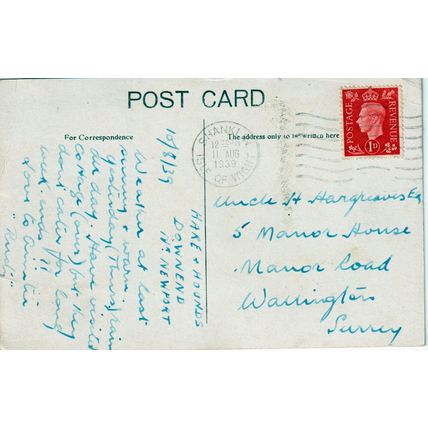 POST CARD
For Correspondence
The address only to be written here.
SHANKLIN
ISLE OF WIGHT
11 AUG
1939
POSTAGE
REVENUE
1D
10/8/39
HARE & HOUNDS
DOWNEND
NEWPORT
Weather at last
sunny & warm.
Yesterday (Thurs) rain
all day. Have visited
cottage (ours) but they
don't cater for long
week ends!!
Love to Auntie
Uncle H Hargreaves Esq
5 Manor House
Manor Road
Wallington
Surrey